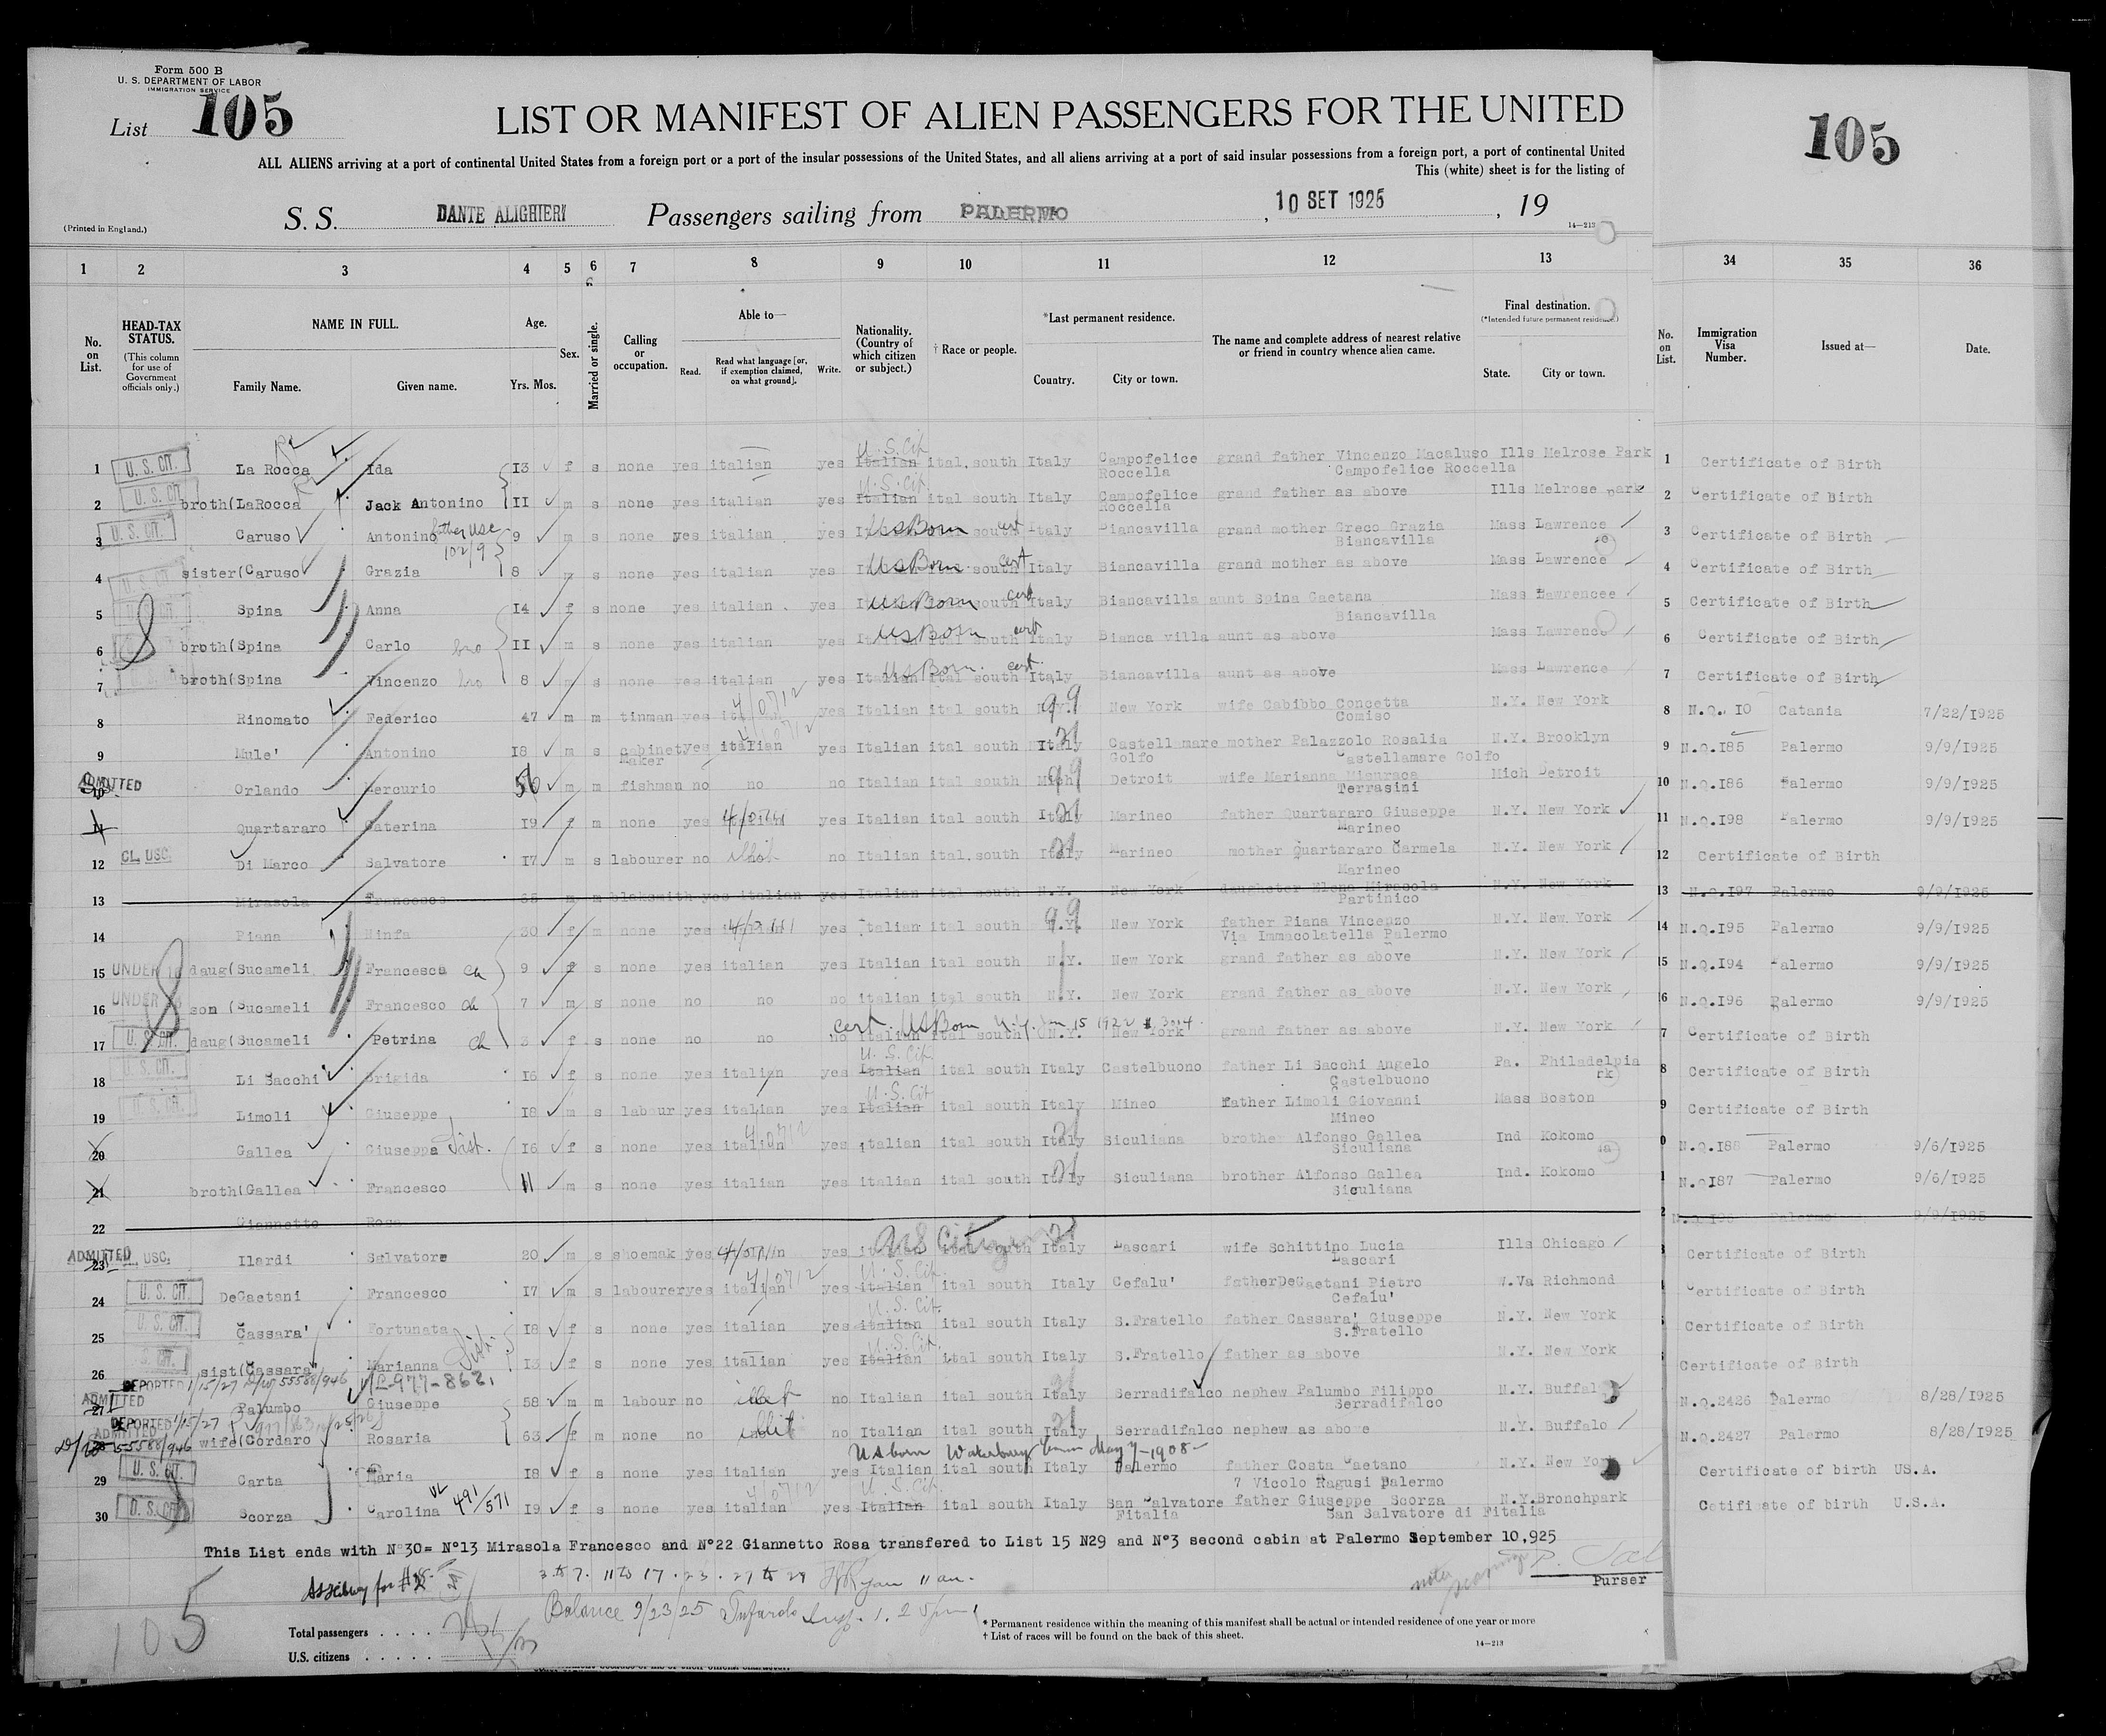 Form 500 B
U. S. DEPARTMENT OF LABOR
IMMIGRATION SERVICE
List 105
LIST OR MANIFEST OF ALIEN PASSENGERS FOR THE UNITED
105
ALL ALIENS arriving at a port of continental United States from a foreign port or a port of the insular possessions of the United States, and all aliens arriving at a port of said insular possessions from a foreign port, a port of continental United
This (white) sheet is for the listing of
(Printed in England.)
S. S. DANTE ALIGHIERI Passengers sailing from PALERMO, 10 SET 1925, 19
14—213
1 2 3 4 5 6 7 8 9 10 11 12 13 34 35 36
No. on List.
HEAD-TAX STATUS.
(This column for use of Government officials only.)
NAME IN FULL.
Family Name. Given name.
Age.
Yrs. Mos.
Sex.
Married or single.
Calling or occupation.
Able to—
Read. Read what language [or, if exemption claimed, on what ground]. Write.
Nationality. (Country of which citizen or subject.)
† Race or people.
*Last permanent residence.
Country. City or town.
The name and complete address of nearest relative or friend in country whence alien came.
Final destination.
(*Intended future permanent residence.)
State. City or town.
No. on List.
Immigration Visa Number.
Issued at—
Date.
1 U. S. CIT. La Rocca Ida 13 f s none yes italian yes Italian U. S. Cit. ital. south Italy Campofelice Roccella grand father Vincenzo Macaluso Campofelice Roccella Ills Melrose Park 1 Certificate of Birth
2 U. S. CIT. broth(LaRocca Jack Antonino 11 m s none yes italian yes Italian U. S. Cit. ital south Italy Campofelice Roccella grand father as above Ills Melrose park 2 Certificate of Birth
3 U. S. CIT. Caruso Antonino 102/9 9 m s none yes italian yes US Born cert Italy Biancavilla grand mother Greco Grazia Biancavilla Mass Lawrence 3 Certificate of Birth
4 sister(Caruso Grazia 8 s none yes italian yes US Born cert south Italy Biancavilla grand mother as above Mass Lawrence 4 Certificate of Birth
5 Spina Anna 14 f s none yes italian yes US Born cert south Italy Biancavilla aunt Spina Gaetana Biancavilla Mass Lawrencee 5 Certificate of Birth
6 broth(Spina Carlo bro 11 m s none yes italian yes US Born cert ital south Italy Bianca villa aunt as above Mass Lawrence 6 Certificate of Birth
7 broth(Spina Vincenzo bro 8 m s none yes italian yes Italian US Born cert. ital south Italy Biancavilla aunt as above Mass Lawrence 7 Certificate of Birth
8 Rinomato Federico 47 m m tinman yes yes Italian ital south 99 New York wife Cabibbo Concetta Comiso N.Y. New York 8 N.Q. 10 Catania 7/22/1925
9 Mule' Antonino 18 m s cabinet maker yes italian yes Italian ital south Italy 21 Castellamare Golfo mother Palazzolo Rosalia Castellamare Golfo N.Y. Brooklyn 9 N.Q.185 Palermo 9/9/1925
ADMITTED 10 Orlando Mercurio 50 m m fishman no no no Italian ital south Mich 99 Detroit wife Marianna Misuraca Terrasini Mich Detroit 10 N.Q.186 Palermo 9/9/1925
11 Quartararo Caterina 19 f m none yes yes Italian ital south Italy 21 Marineo father Quartararo Giuseppe Marineo N.Y. New York 11 N.Q.198 Palermo 9/9/1925
12 CL. USC. Di Marco Salvatore 17 m s labourer no no Italian ital.south Italy 21 Marineo mother Quartararo Carmela Marineo N.Y. New York 12 Certificate of Birth
13 Mirasola Francesco 65 m m blaksmith yes italian yes Italian ital south N.Y. New York daughoter Elena Mirasola Partinico N.Y. New York 13 N.Q.197 Palermo 9/9/1925
14 Piana Ninfa 30 f m none yes yes Italian ital south N.Y. 99 New York father Piana Vincenzo Via Immacolatella Palermo N.Y. New York 14 N.Q.195 Palermo 9/9/1925
15 UNDER 16 daug(Sucameli Francesca ch 9 f s none yes italian yes Italian ital south N.Y. New York grand father as above N.Y. New York 15 N.Q.194 Palermo 9/9/1925
16 UNDER 16 son (Sucameli Francesco ch 7 m s none no no no italian ital south N.Y. New York grand father as above N.Y. New York 16 N.Q.196 Palermo 9/9/1925
cert. US Born N.Y. Jan 15 1922 # 3014
17 U. S. CIT. daug(Sucameli Petrina ch 3 f s none no no no Italian ital south N.Y. New York grand father as above N.Y. New York 7 Certificate of Birth
18 U. S. CIT. Li Sacchi Brigida 16 f s none yes italian yes Italian U. S. Cit. ital south Italy Castelbuono father Li Sacchi Angelo Castelbuono Pa. Philadelpia 8 Certificate of Birth
19 U. S. CIT. Limoli Giuseppe 18 m s labour yes italian yes Italian U. S. Cit ital south Italy Mineo father Limoli Giovanni Mineo Mass Boston 9 Certificate of Birth
20 Gallea Giuseppa Sist. 16 f s none yes italian yes italian ital south Italy 21 Siculiana brother Alfonso Gallea Siculiana Ind Kokomo 0 N.Q.188 Palermo 9/6/1925
21 broth(Gallea Francesco 11 m s none yes italian yes italian ital south Italy 21 Siculiana brother Alfonso Gallea Siculiana Ind. Kokomo 1 N.Q187 Palermo 9/6/1925
22 Giannetto Rosa 2 Palermo 9/9/1925
ADMITTED 23 CL. USC. Ilardi Salvatore 20 m s shoemak yes yes US Citizen ital south Italy 21 Lascari wife Schittino Lucia Lascari Ills Chicago 3 Certificate of Birth
24 U. S. CIT. DeGaetani Francesco 17 m s labourer yes italian yes italian U. S. Cit. ital south Italy Cefalu' father DeGaetani Pietro Cefalu' W.Va Richmond Certificate of Birth
25 U. S. CIT. Cassara' Fortunata 18 f s none yes italian yes italian U. S. Cit. ital south Italy S.Fratello father Cassara' Giuseppe S.Fratello N.Y. New York Certificate of Birth
26 S. CIT. sist(Cassara' Marianna Sist. 13 f s none yes italian yes Italian U. S. Cit. ital south Italy S.Fratello father as above N.Y. New York Certificate of Birth
DEPORTED 1/15/27 55588/946
ADMITTED 27 Palumbo Giuseppe 58 m m labour no illit no Italian ital south Italy Serradifalco nephew Palumbo Filippo Serradifalco N.Y. Buffalo N.Q.2426 Palermo 8/28/1925
DEPORTED 1/15/27
ADMITTED 55588/946 wife(Cordaro Rosaria 63 f m none no illit no Italian ital south Italy 21 Serradifalco nephew as above N.Y. Buffalo N.Q.2427 Palermo 8/28/1925
US born Waterbury Conn May 7-1908
29 U. S. CIT. Carta Maria 18 f s none yes italian yes Italian ital south Italy Palermo father Costa Gaetano 7 Vicolo Ragusi Palermo N.Y. New York Certificate of birth US.A.
30 U. S. CIT. Scorza Carolina 491/571 19 f s none yes italian yes Italian U. S. Cit. ital south Italy San Salvatore Fitalia father Giuseppe Scorza San Salvatore di Fitalia N.Y.Bronchpark Cetificate of birth U.S.A.
This List ends with N°30= N°13 Mirasola Francesco and N°22 Giannetto Rosa transfered to List 15 N29 and N°3 second cabin at Palermo September 10,925
3 to 7. 11 to 17. 23. 27 to 29 Ryan 11 am.
Purser
Balance 9/23/25
105
Total passengers
U.S. citizens
* Permanent residence within the meaning of this manifest shall be actual or intended residence of one year or more
† List of races will be found on the back of this sheet.
14—213